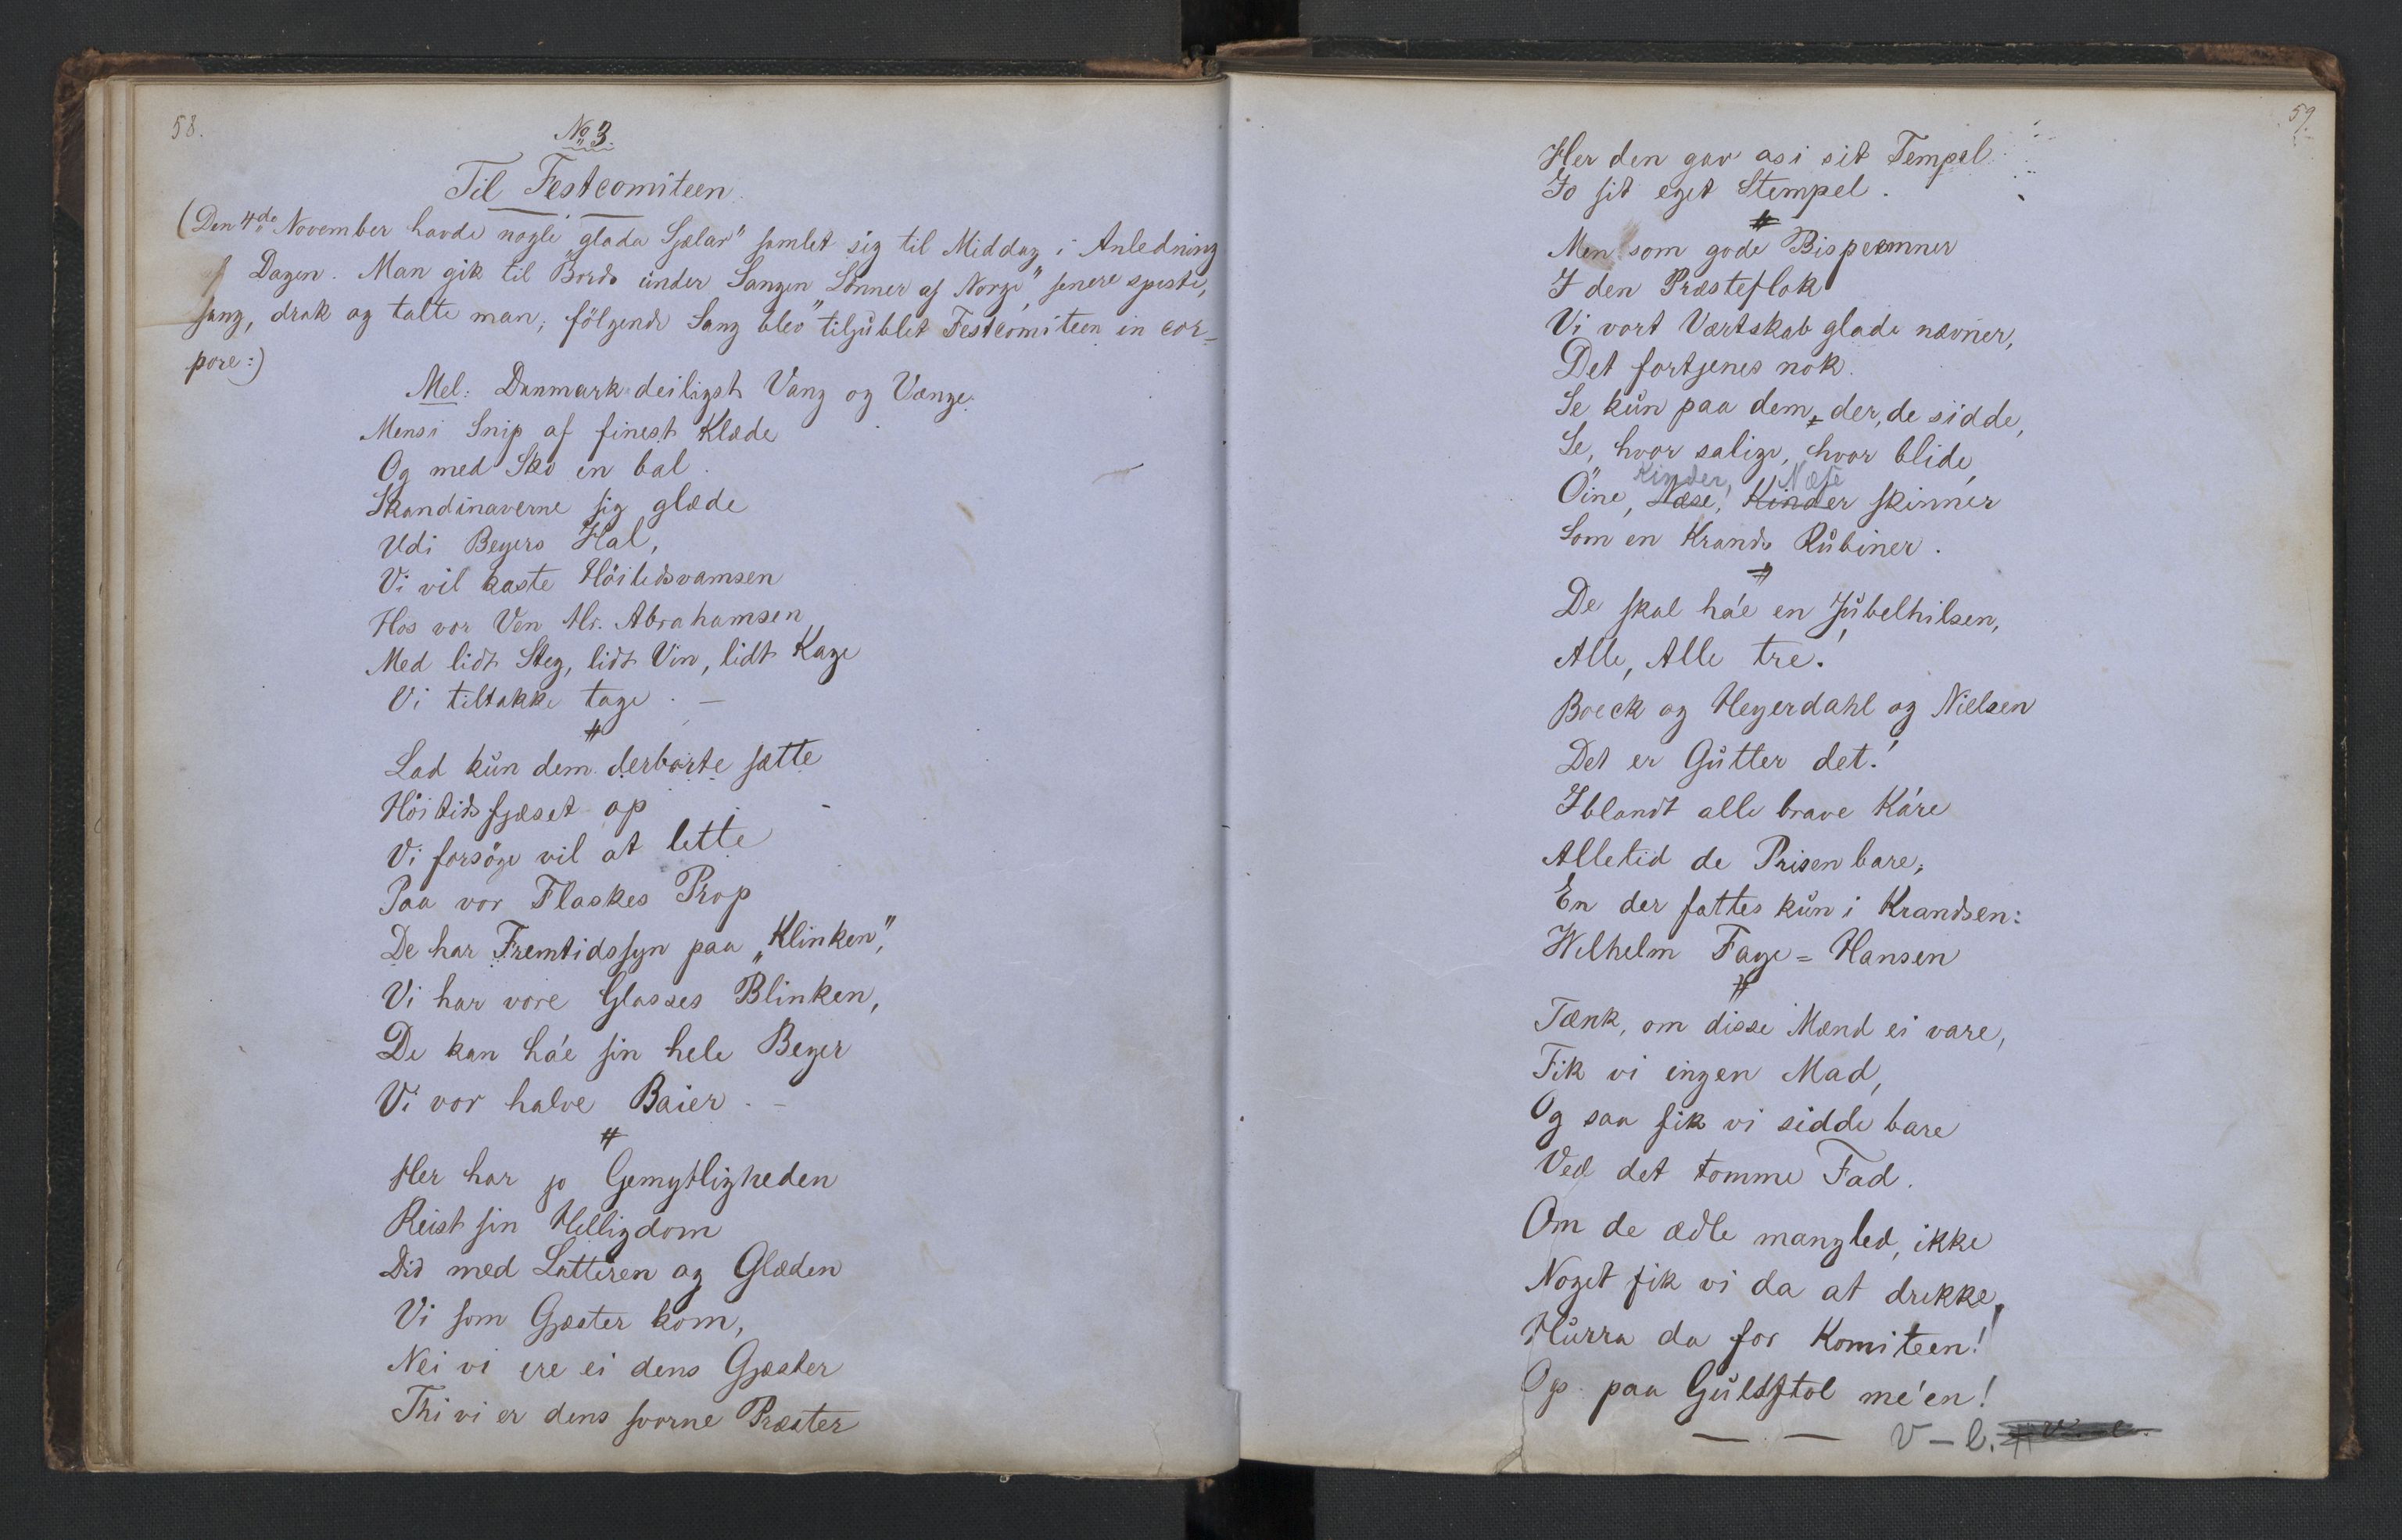 58.
No 3.
Til Festcomiteen.
(Den 4de November havde nogle "glada Sjælar" samlet sig til Middag i Anledning
af Dagen. Man gik til Bords under Sangen "Sönner af Norge", senere spiste,
sang, drak og talte man; fölgende Sang blev tiljublet Festcomiteen in cor-
pore:)
Mel: Danmark deiligst Vang og Vænge.
Mens i Snip af finest Klæde
Og med Sko en bal.
Skandinaverne sig glæde
Udi Beyers Hal,
Vi vil kaste Höitidsvamsen
Hos vor Ven Hr. Abrahamsen
Med lidt Steg, lidt Vin, lidt Kage
Vi tiltakke tage. —
#
Lad kun dem derborte sætte
Höitidsfjæset op
Vi forsöge vil at lette
Paa vor Flaskes Prop
De har Fremtidssyn paa "Klinken",
Vi har vore Glasses Blinken,
De kan ha'e sin hele Beyer
Vi vor halve Baier. —
#
Her har jo Gemytligheden
Reist sin Helligdom
Did med Latteren og Glæden
Vi som Gjæster kom,
Nei vi ere ei dens Gjæster
Thi vi er dens svorne Præster
59.
Her den gav os i sit Tempel
Jo sit eget Stempel.
#
Men som gode Bispeemner
I den Præsteflok
Vi vort Værtskab glade nævner,
Det fortjenes nok.
Se kun paa dem, der, de sidde,
Se, hvor salige, hvor blide,
Kinder, Næse
Öine, Næse, Kinder skinner
Som en Krands Rubiner.
#
De skal ha'e en Jubelhilsen,
Alle, Alle tre!
Boeck og Heyerdahl og Nielsen
Det er Gutter det!
Iblandt alle brave Kåre
Alletid de Prisen bare;
En der fattes kun i Krandsen:
Wilhelm Faye=Hansen
#
Tænk, om disse Mænd ei vare,
Fik vi ingen Mad,
Og saa fik vi sidde bare
Ved det tomme Fad.
Om de ædle mangled, ikke
Noget fik vi da at drikke,
Hurra da for Komiteen!
Op paa Guldstol me'en!
V-l.